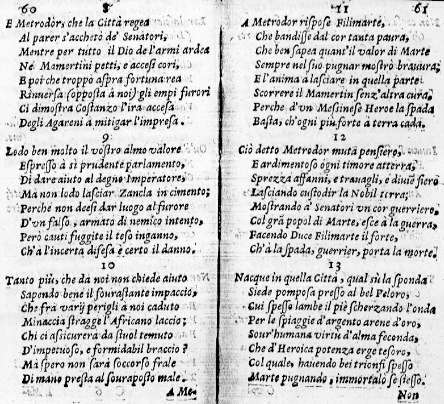 60
8
E Metrodòr, che la Città regea
Al parer s'acchetò de' Senatori,
Mentre per tutto il Dio de l'armi ardea
Ne' Mamertini petti, e accesi cori,
E poi che troppo aspra fortuna rea
Rinuersa (opposta à noi) gli empi furori
Ci dimostra Costanzo l'ira accesa
Degli Agareni à mitigar l'impresa.
9
Lodo ben molto il vostro almo valore
Espresso à sì prudente parlamento,
Di dare aiuto al degno Imperatore,
Ma non lodo lasciar Zancla in cimento;
Perche non deesi dar luogo al furore
D'un falso, armato di nemico intento,
Però cauti fuggite il teso inganno,
Ch'à l'incerta difesa è certo il danno.
10
Tanto più, che da noi non chiede aiuto
Sapendo bene il sourastante impaccio,
Che frà varij perigli à noi caduto
Minaccia stragge l'Africano laccio;
Chi ci assicurera da stuol temuto
D'impetuoso, e formidabil braccio?
Ma spero non sarà soccorso frale
Di mano presta al souraposto male.
A Me-
11
61
A Metrodor rispose Filimarte,
Che bandisse dal cor tanta paura,
Che ben sapea quant'il valor di Marte
Sempre nel suo pugnar mostrò brauura;
E l'anima à lasciare in quella parte
Scorrere il Mamertin senz'altra cura,
Perche d'un Messinese Heroe la spada
Basta, ch'ogni più forte à terra cada.
12
Ciò detto Metrodor mutà pensiero,
E ardimentoso ogni timore atterra,
Sprezza affanni, e trauagli, e diuiè fiero
Lasciando custodir la Nobil terra;
Mostrando à Senatori un cor guerriero,
Col grà popol di Marte, esce à la guerra,
Facendo Duce Filimarte il forte,
Ch'à la spada, guerrier, porta la morte.
13
Nacque in quella Città, qual sù la sponda
Siede pomposa presso al bel Peloro,
Cui spesso lambe il piè scherzando l'onda
Per le spiaggie d'argento arene d'oro,
Sour'humana virtù d'alma feconda,
Che d'Heroica potenza erge tesoro,
Col quale, hauendo bei trionfi spesso
Marte pugnando, immortalò se stesso.
Non